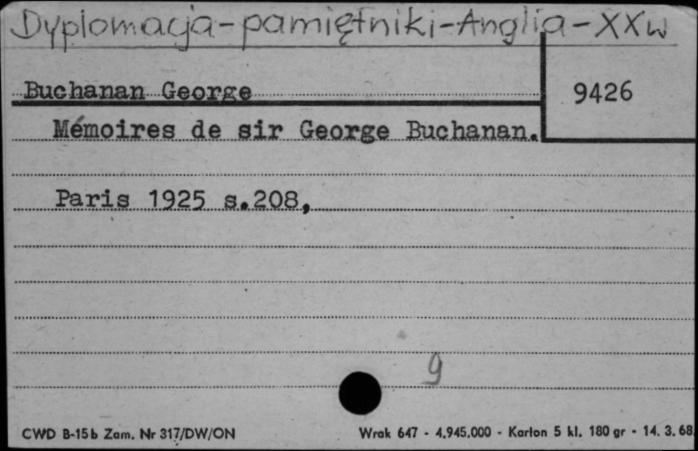 Dyplomacja-pamiętniki-Anglia-XXw
Buchanan George
9426
Mémoires de sir George Buchanan.
Paris 1925 s.208,
9
CWD B-15b Zam. Nr 317/DW/ON
Wrak 647 - 4.945.000 - Karton 5 kl. 180 gr - 14. 3. 68